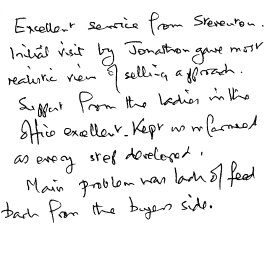 Excellent service from Steventon.
Initial visit by Jonathon gave most
realistic view of selling approach.
Support from the ladies in the
office excellent. Kept us informed
as every step developed.
Main problem was lack of feed
back from the buyers side.